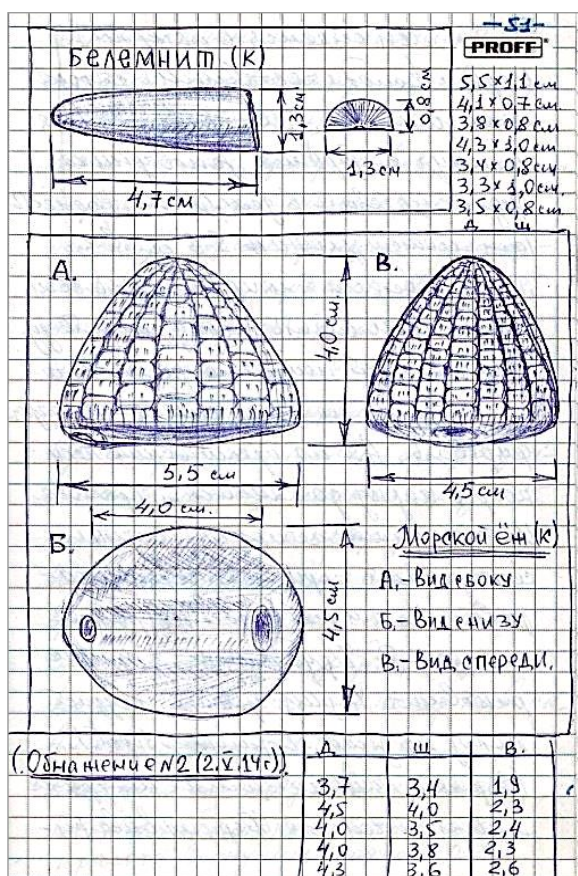 -51-
PROFF
Белемнит (К)
1,3 см
0,8 см
1,3 см
4,7 см
5,5 x 1,1 см
4,1 x 0,7 см.
3,8 x 0,8 см
4,3 x 1,0 см
3,4 x 0,8 см
3,3 x 1,0 см.
3,5 x 0,8 см
Д Ш
А.
В.
4,0 см.
5,5 см
4,5 см
4,0 см.
Б.
4,5 см
Морской ёж (К)
А.- Вид сбоку
Б.- Вид снизу
В.- Вид спереди.
(Обнажение N2 (2.V.14г))
Д Ш В.
3,7 3,4 1,9
4,5 4,0 2,3
4,0 3,5 2,4
4,0 3,8 2,3
4,3 3,6 2,6